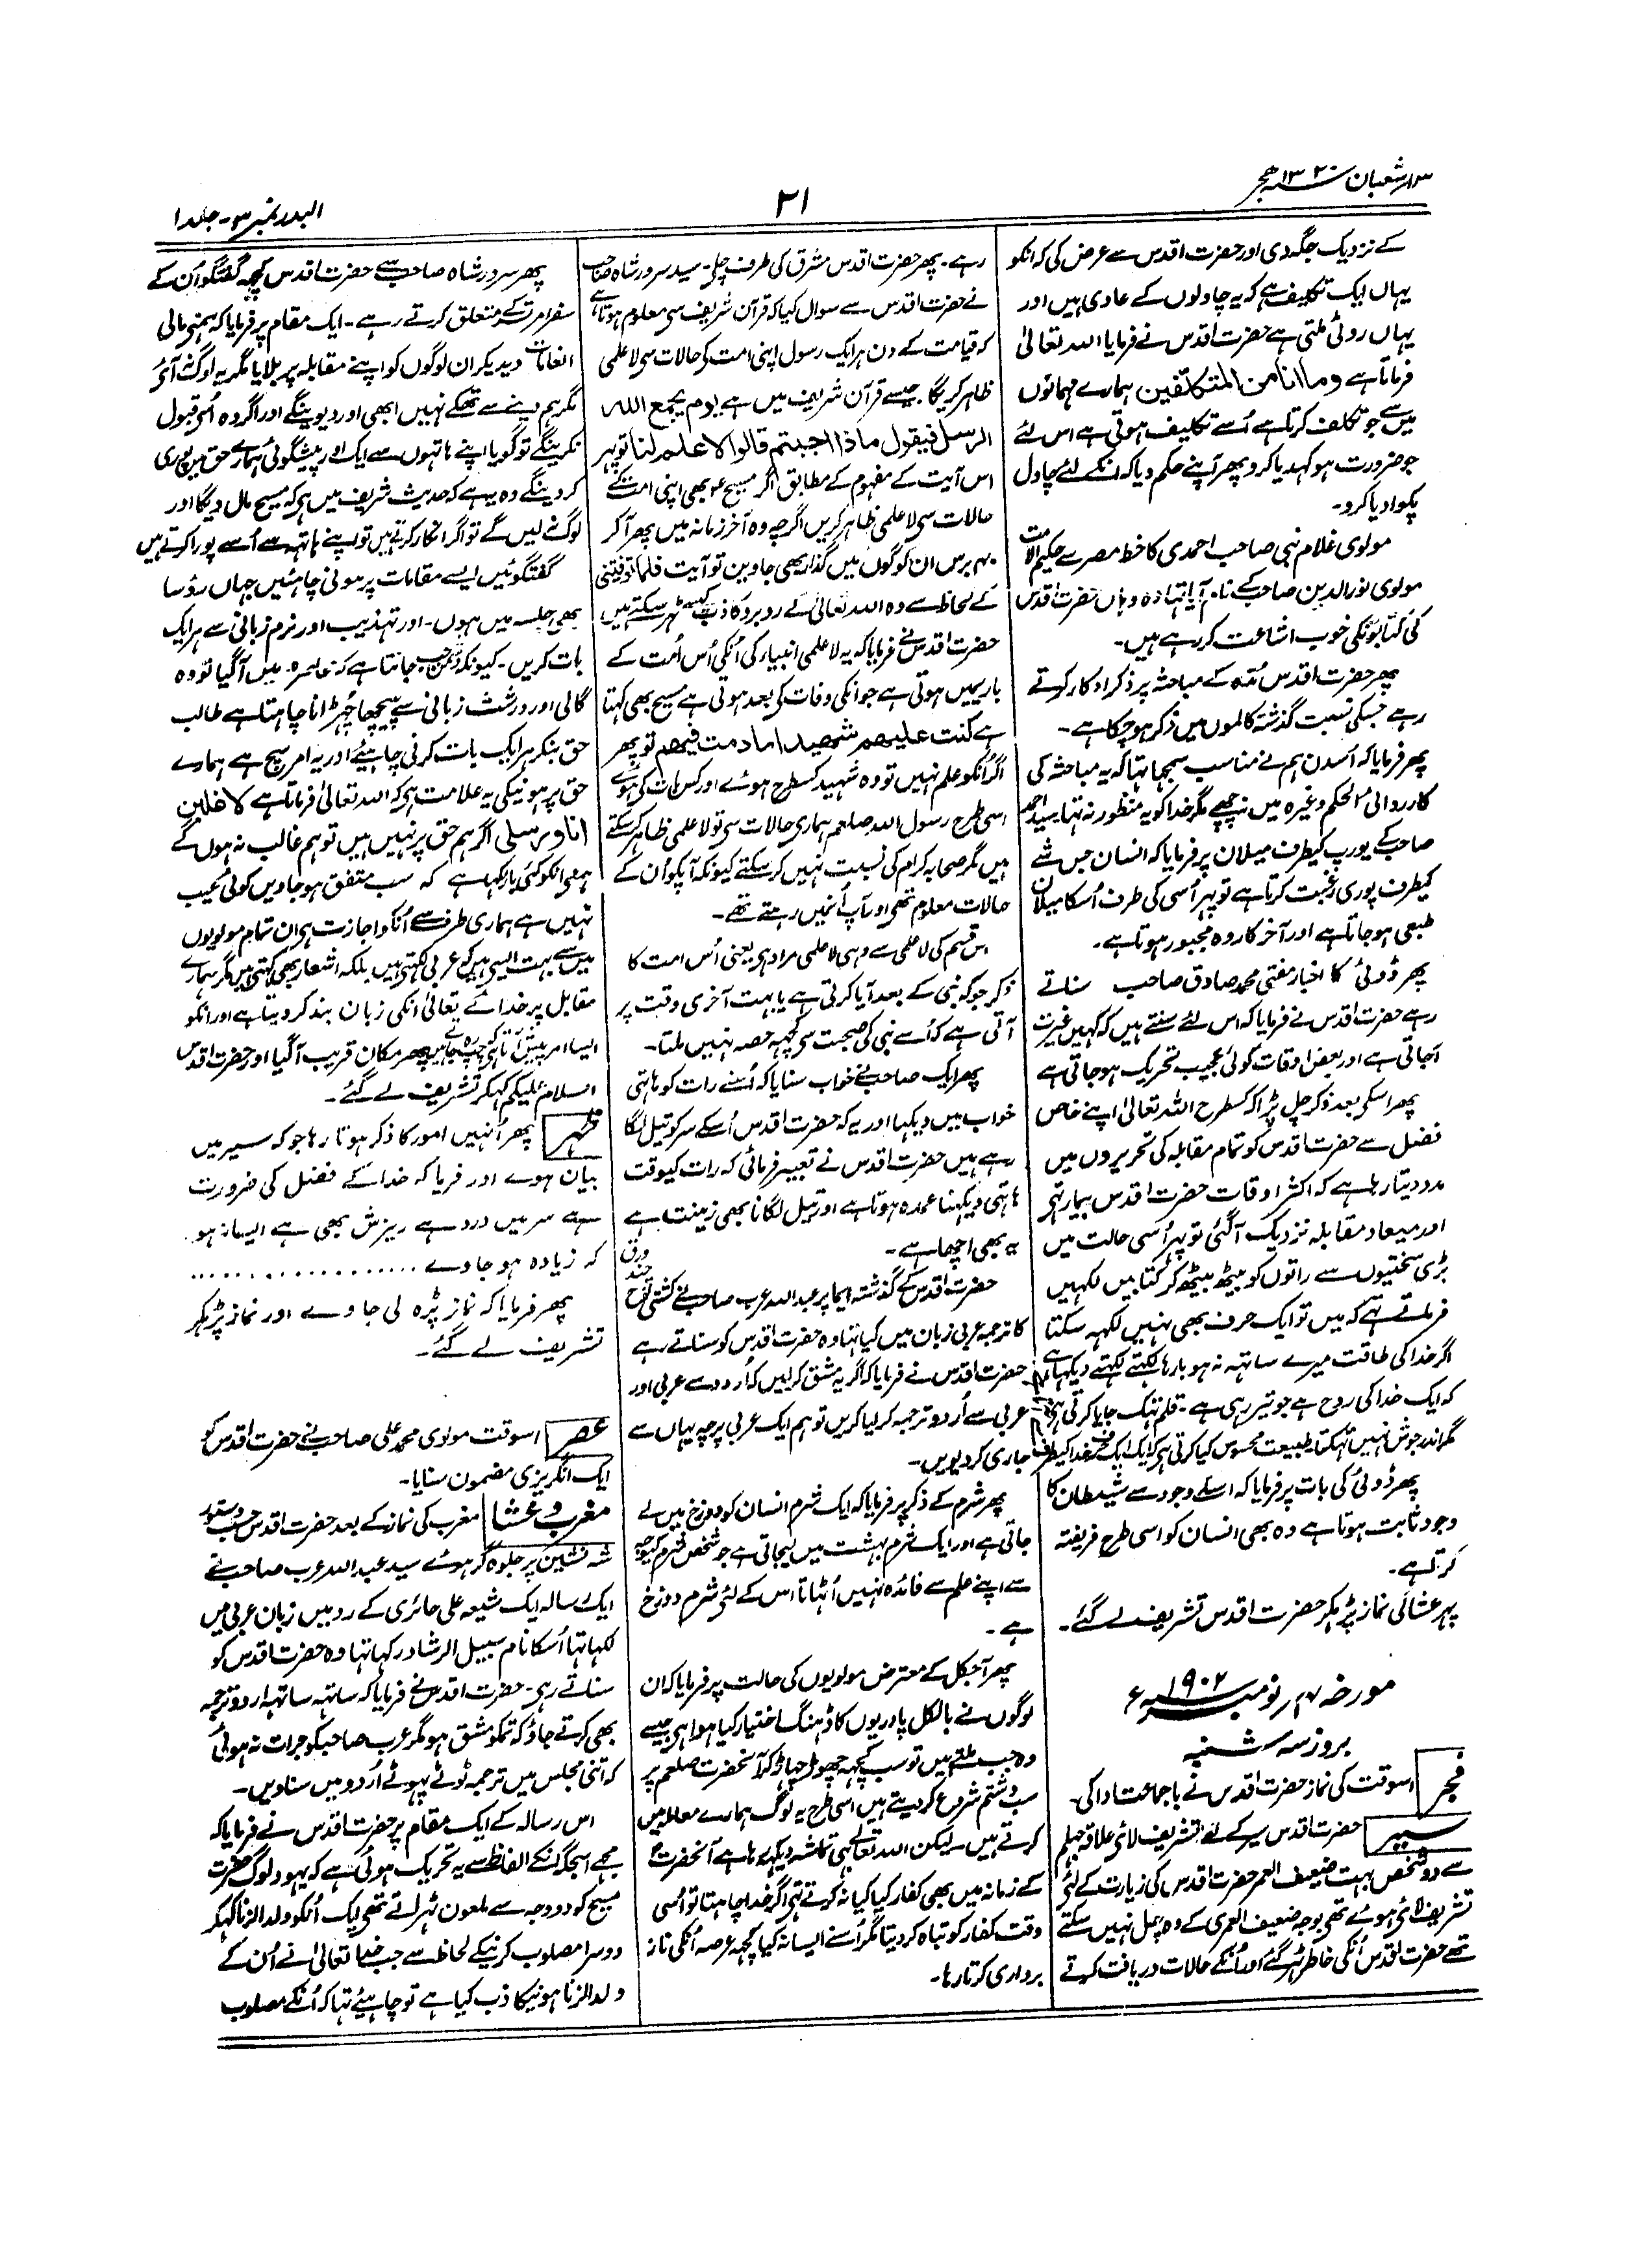 ۱۳ شعبان ۱۳۲۰ ہجر
۲۱
البدر نمبر ۳ - جلد ۱
کے نزدیک جگہ دی اور حضرت اقدس سے عرض کی کہ انکو
یہاں ایک تکلیف ہے کہ یہ چاولوں کے عادی ہیں اور
یہاں روٹی ملتی ہے حضرت اقدس نے فرمایا اللہ تعالیٰ
فرماتا ہے وما انا من المتکلفین ہمارے مہمانوں
میں سے جو تکلف کرتا ہے اُسے تکلیف ہوتی ہے اس لئے
جو ضرورت ہو کہدیا کرو پھر آپنے حکم دیا کہ انکے لئے چاول
پکوا دیا کرو۔
مولوی غلام نبی صاحب احمدی کا خط مصر سے حکیم الامت
مولوی نورالدین صاحب کے نام آیا تہا وہ وہاں حضرت اقدس
کی کتابونکی خوب اشاعت کر رہے ہیں۔
پھر حضرت اقدس مُدّ کے مباحثہ پر ذکر اذکار کرتے
رہے جسکی نسبت گذشتہ کالموں میں ذکر ہو چکا ہے۔
پھر فرمایا کہ اُسدن ہم نے مناسب سمجہا تہا کہ یہ مباحثہ کی
کارروائی الحکم وغیرہ میں نہ چھپے مگر خدا کو یہ منظور نہ تہا سید احمد
صاحب کے یورپ کیطرف میلان پر فرمایا کہ انسان جس شے
کیطرف پوری رغبت کرتا ہے تو پہر اُسی کی طرف اُسکا میلان
طبعی ہو جاتا ہے اور آخر کار وہ مجبور ہوتا ہے۔
پھر ڈوئی کا اخبار مفتی محمد صادق صاحب سناتے
رہے حضرت اقدس نے فرمایا کہ اس لئے سنتے ہیں کہ کہیں غیرت
آجاتی ہے اور بعض اوقات کوئی عجیب تحریک ہو جاتی ہے
پھر اسکے بعد ذکر چل پڑا کہ کسطرح اللہ تعالیٰ اپنے خاص
فضل سے حضرت اقدس کو تمام مقابلہ کی تحریروں میں
مدد دیتا رہا ہے کہ اکثر اوقات حضرت اقدس بیمار تہے
اور میعاد مقابلہ نزدیک آگئی تو پہر اُسی حالت میں
بڑی سختیوں سے راتوں کو بیٹھ بیٹھ کر کتابیں لکہیں
فرماتے تہے کہ میں تو ایک حرف بھی نہیں لکہہ سکتا
اگر خدا کی طاقت میرے ساتہہ نہ ہو بارہا لکہتے لکہتے دیکہا ہے
کہ ایک خدا کی روح ہے جو تیر رہی ہے۔ قلم تہک جایا کرتی ہے
مگر اندر جوش نہیں تہکتا طبیعت محسوس کیا کرتی ہے کہ ایک ایک حرف خدا کیطرف
پھر ڈوئی کی بات پر فرمایا کہ اسکے وجود سے شیطان کا
وجود ثابت ہوتا ہے وہ بھی انسان کو اسی طرح فریفتہ
کرتا ہے۔
پہر عشا کی نماز پڑہکر حضرت اقدس تشریف لے گئے۔
مورخہ ۱۷ نومبر ۱۹۰۲ء
بروز سہ شنبہ
فجر اسوقت کی نماز حضرت اقدس نے باجماعت ادا کی۔
سیر حضرت اقدس سیر کے لئے تشریف لائے علاقہ جہلم
سے دو شخص بہت ضعیف العمر حضرت اقدس کی زیارت کے لئے
تشریف لائے ہوئے تھے بوجہ ضعیف العمری کے وہ چل نہیں سکتے
تھے حضرت اقدس انکی خاطر ٹہر گئے اور انکے حالات دریافت کرتے
رہے۔ پھر حضرت اقدس مشرق کی طرف چلے۔ سید سرور شاہ صاحب
نے حضرت اقدس سے سوال کیا کہ قرآن شریف سے معلوم ہوتا ہے
کہ قیامت کے دن ہر ایک رسول اپنی امت کے حالات سے لاعلمی
ظاہر کریگا جیسے قرآن شریف میں ہے یوم یجمع اللہ
الرسل فیقول ماذا اجبتم قالوا لا علم لنا تو پہر
اس آیت کے مفہوم کے مطابق اگر مسیح بھی اپنی امت کے
حالات سے لاعلمی ظاہر کریں اگرچہ وہ آخر زمانہ میں پھر آکر
۴۰ برس ان لوگوں میں گذار بھی جاویں تو آیت فلما توفیتنی
کے لحاظ سے وہ اللہ تعالیٰ کے روبرو کاذب کیسے ٹہر سکتے ہیں
حضرت اقدس نے فرمایا کہ یہ لاعلمی انبیاء کی اُنکی اُس اُمت کے
بارے میں ہوتی ہے جو انکی وفات کے بعد ہوتی ہے مسیح بھی کہتا
ہے کنت علیہم شہیدا ما دمت فیہم تو پھر
اگر اُنکو علم نہیں تو وہ شہید کسطرح ہوئے اور کس بات کے ہوئے
اسی طرح رسول اللہ صلعم ہماری حالات سے تو لاعلمی ظاہر کر سکتے
ہیں مگر صحابہ کرام کی نسبت نہیں کر سکتے کیونکہ آپکو اُن کے
حالات معلوم تھے اور آپ اُنمیں رہتے تھے۔
اس قسم کی لاعلمی سے وہی لاعلمی مراد ہے یعنی اُس امت کا
ذکر جو کہ نبی کے بعد آیا کرتی ہے یا بہت آخری وقت پر
آتی ہے کہ اُسے نبی کی صحبت سے کچہہ حصہ نہیں ملتا۔
پھر ایک صاحب نے خواب سنایا کہ اُسنے رات کو ہاتہی
خواب میں دیکہا اور یہ کہ حضرت اقدس اُسکے سر کو تیل لگا
رہے ہیں حضرت اقدس نے تعبیر فرمائی کہ رات کیوقت
ہاتہی دیکہنا عمدہ ہوتا ہے اور تیل لگانا بھی زینت ہے
یہ بھی اچھا ہے۔
حضرت اقدس کے گذشتہ ایما پر عبداللہ عرب صاحب نے کشتی نوح چند ورق
کا ترجمہ عربی زبان میں کیا تہا وہ حضرت اقدس کو سناتے رہے
حضرت اقدس نے فرمایا کہ اگر یہ مشق کرلیں کہ اُردو سے عربی اور
عربی سے اُردو ترجمہ کر لیا کریں تو ہم ایک عربی پرچہ یہاں سے
جاری کر دیویں۔
پھر شرم کے ذکر پر فرمایا کہ ایک شرم انسان کو دوزخ میں لے
جاتی ہے اور ایک شرم بہشت میں لیجاتی ہے جو شخص شرم کیوجہ
سے اپنے علم سے فائدہ نہیں اُٹہاتا اس کے لئے شرم دوزخ
ہے۔
پھر آجکل کے معترض مولویوں کی حالت پر فرمایا کہ ان
لوگوں نے بالکل پادریوں کا ڈہنگ اختیار کیا ہوا ہے جیسے
وہ جب ملتے ہیں تو سب کچہہ چھوڑ چہاڑ کر آنحضرت صلعم پر
سب و شتم شروع کر دیتے ہیں اسی طرح یہ لوگ ہمارے معاملہ میں
کرتے ہیں لیکن اللہ تعالےٰ بہی تماشہ دیکہہ رہا ہے آنحضرت
کے زمانہ میں بھی کفار کیا کیا نہ کرتے تہے اگر خدا چاہتا تو اُسی
وقت کفار کو تباہ کر دیتا مگر اُسنے ایسا نہ کیا کچہہ عرصہ اُنکی ناز
برداری کرتا رہا۔
پھر سرور شاہ صاحب سے حضرت اقدس کچہہ گفتگو اُن کے
سفر امرتسر کے متعلق کرتے رہے۔ ایک مقام پر فرمایا کہ ہمنے مالی
انعامات دیدیکر ان لوگوں کو اپنے مقابلہ پر بلایا مگر یہ لوگ نہ آئے
مگر ہم دینے سے تھکے نہیں ابھی اور دیوینگے اور اگر وہ اُسے قبول
نکرینگے تو گویا اپنے ہاتہوں سے ایک اور پیشگوئی ہمارے حق میں پوری
کر دینگے وہ یہ ہے کہ حدیث شریف میں ہے کہ مسیح مال دیگا اور
لوگ نہ لیں گے تو اگر انکار کرتے ہیں تو اپنے ہاتہہ سے اُسے پورا کرتے ہیں
گفتگوئیں ایسے مقامات پر ہونی چاہئیں جہاں رؤسا
بھی جلسہ میں ہوں۔ اور تہذیب اور نرم زبانی سے ہر ایک
بات کریں۔ کیونکہ دشمن جب جانتا ہے کہ محاصرہ میں آگیا تو وہ
گالی اور درشت زبانی سے پیچھا چُہڑانا چاہتا ہے طالب
حق بنکر ہر ایک بات کرنی چاہیئے اور یہ امر سچ ہے ہمارے
حق پر ہونیکی یہ علامت ہے کہ اللہ تعالیٰ فرماتا ہے لاغلبن
انا ورسلی اگر ہم حق پر نہیں ہیں تو ہم غالب نہ ہوں گے
ہمنے انکو کئی بار کہا ہے کہ سب متفق ہو جاویں کوئی عیب
نہیں ہے ہماری طرف سے اُنکو اجازت ہے ان تمام مولویوں
میں سے بہت ایسے ہیں کہ عربی لکھتے ہیں بلکہ اشعار بھی کہتے ہیں مگر ہمارے
مقابل پر خدائے تعالیٰ انکی زبان بند کر دیتا ہے اور انکو
ایسا امر پیش آتا ہے کہ چپ رہ جاتے ہیں پھر مکان قریب آگیا اور حضرت اقدس
السلام علیکم کہکر تشریف لے گئے۔
ظہر پھر اُنہیں امور کا ذکر ہوتا رہا جو کہ سیر میں
بیان ہوے اور فرمایا کہ خدا کے فضل کی ضرورت
ہے سر میں درد ہے ریزش بھی ہے ایسا نہ ہو
کہ زیادہ ہو جاوے ..................
پھر فرمایا کہ نماز پڑہ لی جاوے اور نماز پڑہکر
تشریف لے گئے۔
عصر اسوقت مولوی محمد علی صاحب نے حضرت اقدس کو
ایک انگریزی مضمون سنایا۔
مغرب و عشا مغرب کی نماز کے بعد حضرت اقدس حسب دستور
شہ نشین پر جلوہ گر ہوئے سید عبداللہ عرب صاحب نے
ایک رسالہ ایک شیعہ علی حائری کے رد میں زبان عربی میں
لکہا تہا اُسکا نام سبیل الرشاد رکہا تہا وہ حضرت اقدس کو
سناتے رہے۔ حضرت اقدس نے فرمایا کہ ساتہہ ساتہہ اردو ترجمہ
بھی کرتے جاؤ کہ تمکو مشق ہو مگر عرب صاحبکو جرات نہ ہوئی
کہ اتنی مجلس میں ترجمہ ٹوٹے پہوٹے اُردو میں سناویں۔
اس رسالہ کے ایک مقام پر حضرت اقدس نے فرمایا کہ
مجھے اسجگہ انکے الفاظ سے یہ تحریک ہوئی ہے کہ یہود لوگ حضرت
مسیح کو دو وجہ سے ملعون ٹہراتے تھے ایک اُنکو ولد الزنا کہکر
دوسرا مصلوب کرنیکے لحاظ سے جب خدا تعالیٰ نے اُن کے
ولد الزنا ہونیکا ذب کیا ہے تو چاہیئے تہا کہ اُنکے مصلوب